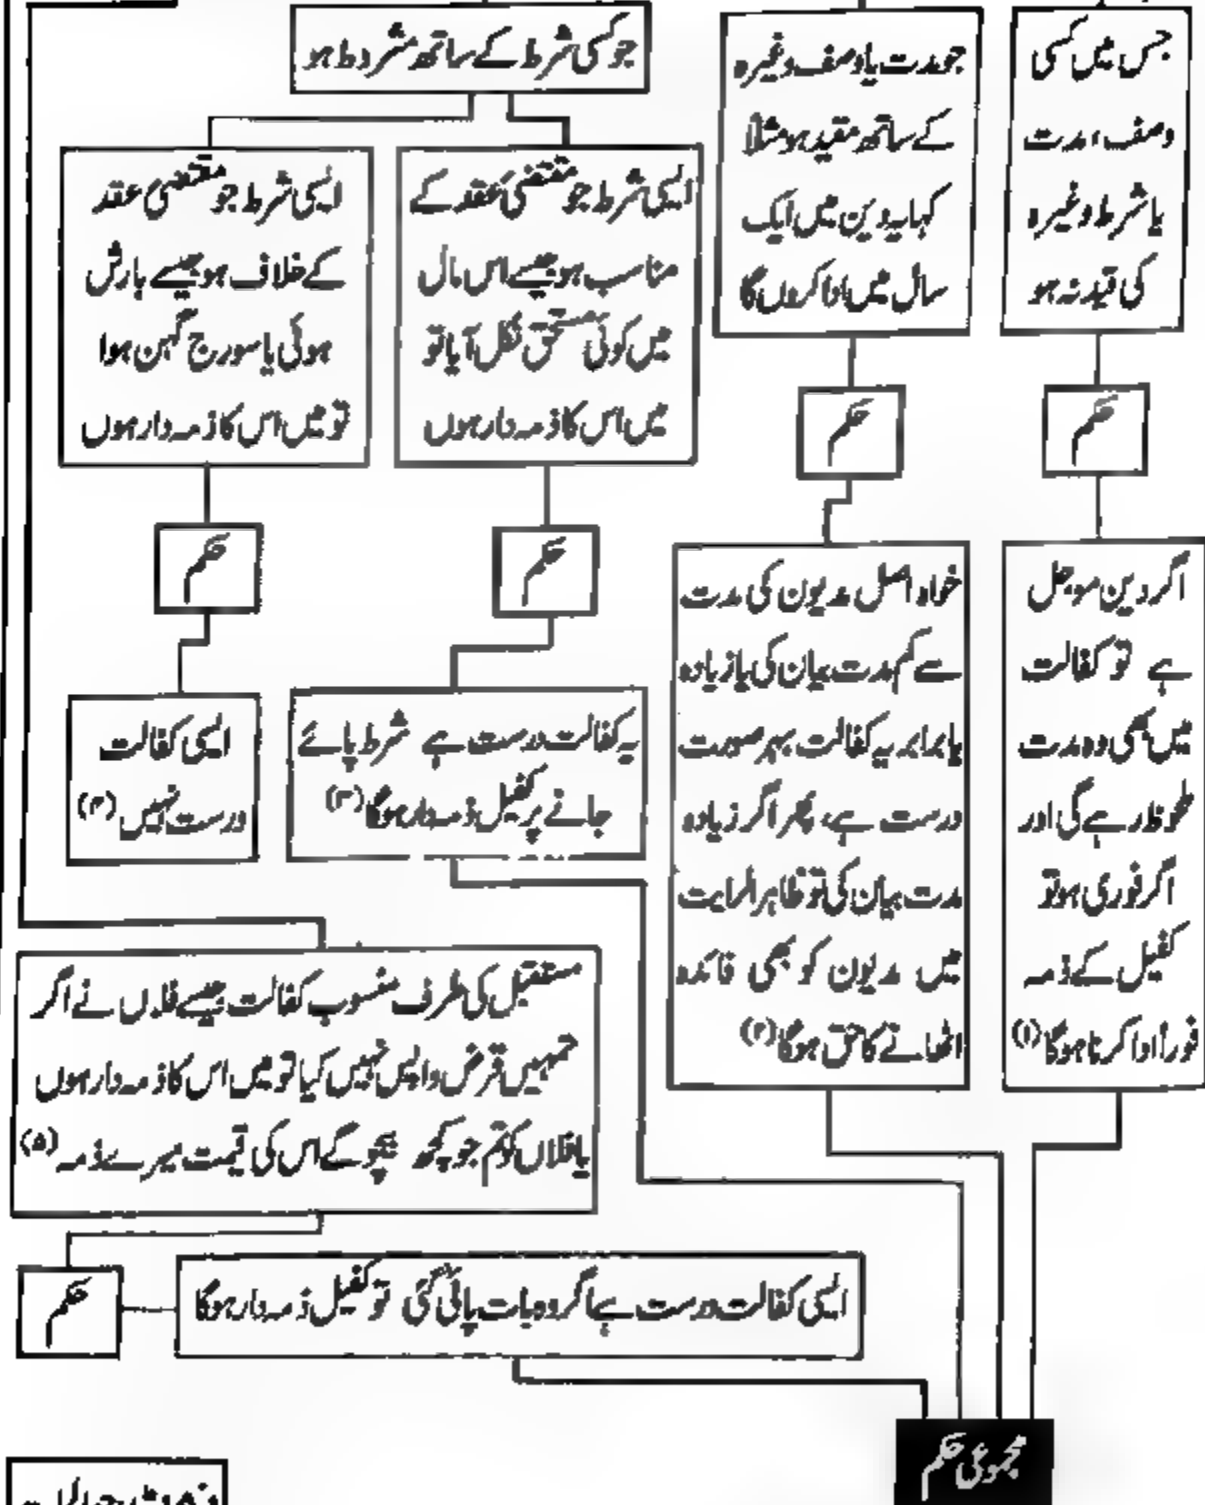 جس میں کسی
وصف، مدت
یا شرط وغیرہ
کی قید نہ ہو
حکم
اگر دین موجل
ہے تو کفالت
میں بھی وہ مدت
ملحوظ رہے گی اور
اگر فوری ہو تو
کفیل کے ذمہ
فوراً ادا کرنا ہوگا (۱)
جو مدت یا وصف وغیرہ
کے ساتھ مقید ہو مثلاً
کہا یہ دین میں ایک
سال میں ادا کروں گا
حکم
خواہ اصل مدیون کی مدت
سے کم مدت بیان کی یا زیادہ
یا برابر یہ کفالت بہر صورت
درست ہے، پھر اگر زیادہ
مدت بیان کی تو ظاہر الروایت
میں مدیون کو بھی فائدہ
اٹھانے کا حق ہوگا (۲)
جو کسی شرط کے ساتھ مشروط ہو
ایسی شرط جو مقتضیٰ عقد کے
مناسب ہو جیسے اس مال
میں کوئی مستحق نکل آیا تو
میں اس کا ذمہ دار ہوں
حکم
یہ کفالت درست ہے شرط پائے
جانے پر کفیل ذمہ دار ہوگا (۳)
ایسی شرط جو مقتضیٰ عقد
کے خلاف ہو جیسے بارش
ہوئی یا سورج گہن ہوا
تو میں اس کا ذمہ دار ہوں
حکم
ایسی کفالت
درست نہیں (۴)
مستقبل کی طرف منسوب کفالت جیسے فلاں نے اگر
تمہیں قرض واپس نہیں کیا تو میں اس کا ذمہ دار ہوں
یا فلاں کو تم جو کچھ بیچو گے اس کی قیمت میرے ذمہ (۵)
حکم
ایسی کفالت درست ہے اگر وہ بات پائی گئی تو کفیل ذمہ دار ہوگا
مجموعی حکم